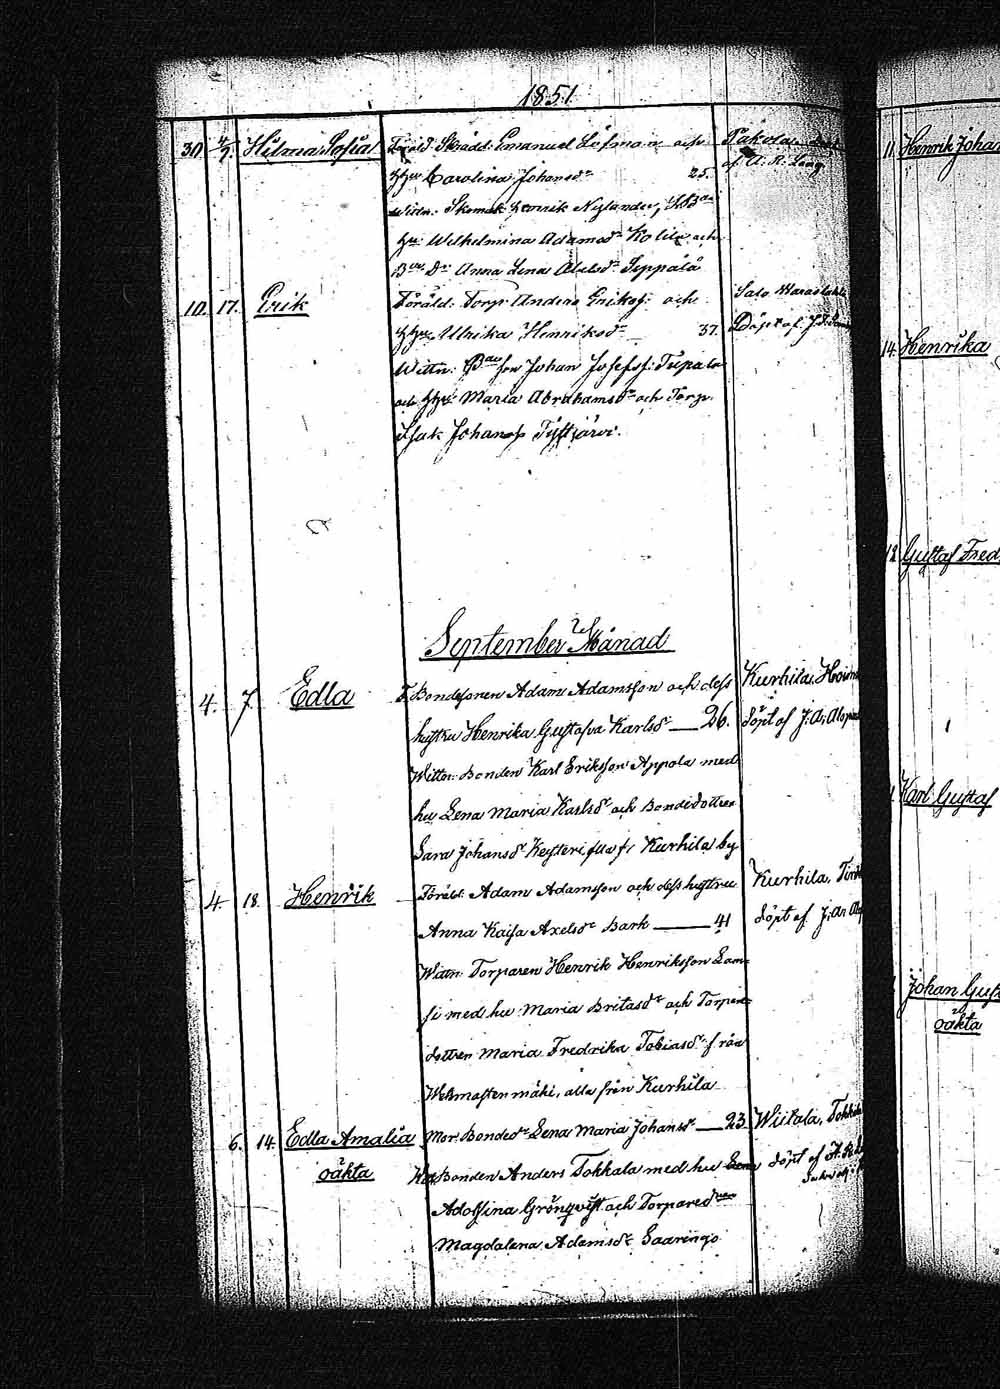 1851
30 4/9. Hilma Sofia Föräld. Skrädd. Emanuel Löfman och Pakola
Hu Carolina Johansdr 25. af A. R. Lang
Wittn: Skomak Henrik Nylander,
Hu: Wilhelmina Adamsdr Kolila och
Anna Lena Axelsdr Seppälä
10. 17. Erik Föräld: Torp: Anders Eriksf: och Salo
Hu Ulrika Henriksdr 37. Döpt af
Wittn: Johan Josefsf: Tupala
och Hu Maria Abrahamsdr och Torp.
Isak Johansf
September Månad
4. 7. Edla F. Bondesonen Adam Adamsson och dess Kurhila,
hustru Henrika Gustafva Karlsdr — 26. döpt af J: A:
Wittn: Bonden Karl Eriksson Appola med
hu Lena Maria Karlsdr och Bondedottren
Sara Johansdr Keysteri alla fr Kurhila by
4. 18. Henrik Föräld: Adam Adamsson och dess hustru Kurhila,
Anna Kaisa Axelsdr Bark — 41 döpt af J: A:
Wittn: Torparen Henrik Henriksson Lam-
si med hu: Maria Britasdr och Torpare-
dottren Maria Fredrika Tobiasdr från
alla från Kurhila
6. 14. Edla Amalia Mor. Bondedr Lena Maria Johansdr — 23 Wistala,
oäkta Wit. Bonden Anders Tokkala med hu döpt af
Adolfina Grönqvist och Torparedren
Magdalena Adamsdr Saaringo
11 Henrik Johan
14. Henrika
12 Gustaf Fred
Karl Gustaf
Johan Gust
oäkta